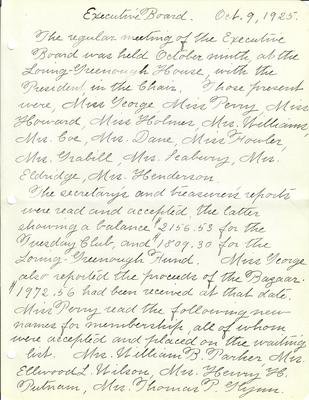 Executive Board. Oct. 9, 1925.
The regular meeting of the Executive
Board was held October ninth, at the
Loring-Greenough House, with the
President in the Chair. Those present
were, Miss George Miss Perry Miss
Howard, Miss Holmes, Mrs. Williams,
Mrs. Coe, Mrs. Dane, Miss Fowler,
Mrs. Grabill, Mrs. Seabury, Mrs.
Eldridge, Mrs. Henderson.
The secretary's and treasurer's reports
were read and accepted, the latter
showing a balance $2156.53 for the
Tuesday Club, and $1809.30 for the
Loring-Greenough Fund. Miss George
also reported the proceeds of the Bazaar.
$1972.56 had been received at that date.
Miss Perry read the following new
names for membership, all of whom
were accepted and placed on the waiting
list. Mrs. William B. Parker Mrs.
Ellwood L. Wilson, Mrs. Henry H.
Putnam, Mrs. Thomas P.